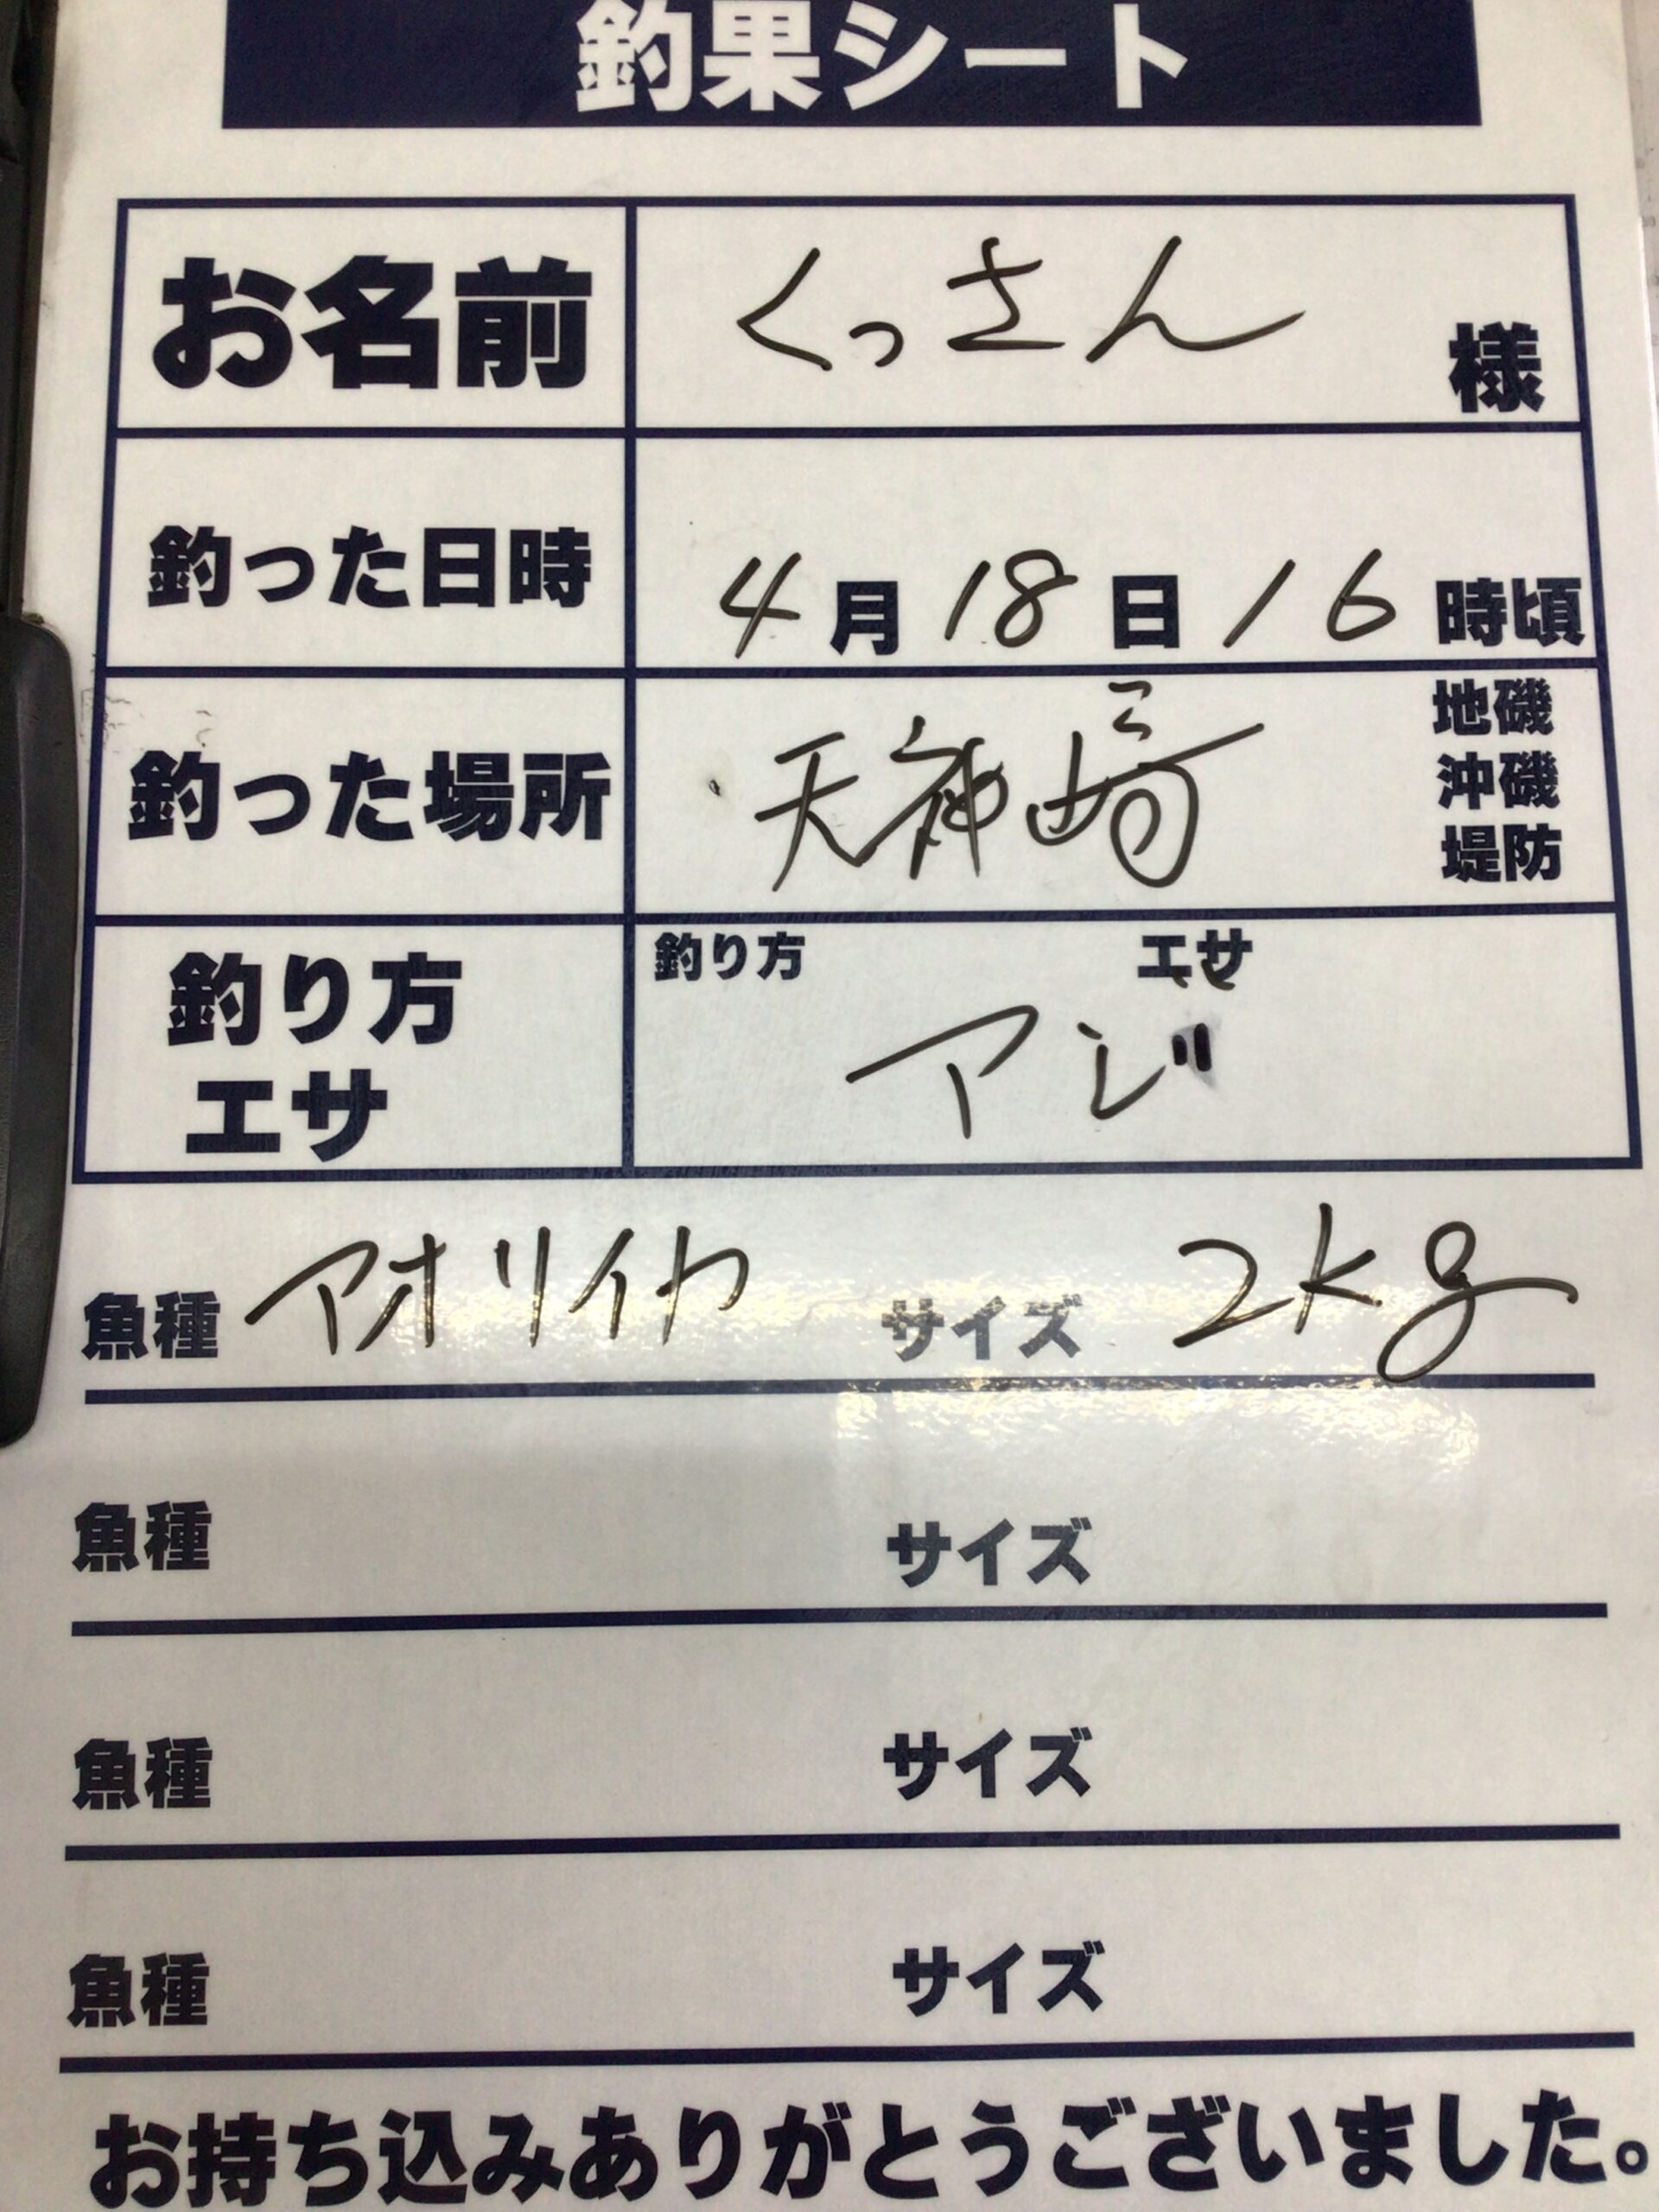 釣果シート
お名前 くっさん 様
釣った日時 4月18日16時頃
釣った場所 天神崎 地磯 沖磯 堤防
釣り方 エサ 釣り方 エサ
アジ
魚種 アオリイカ サイズ 2kg
魚種 サイズ
魚種 サイズ
魚種 サイズ
お持ち込みありがとうございました。